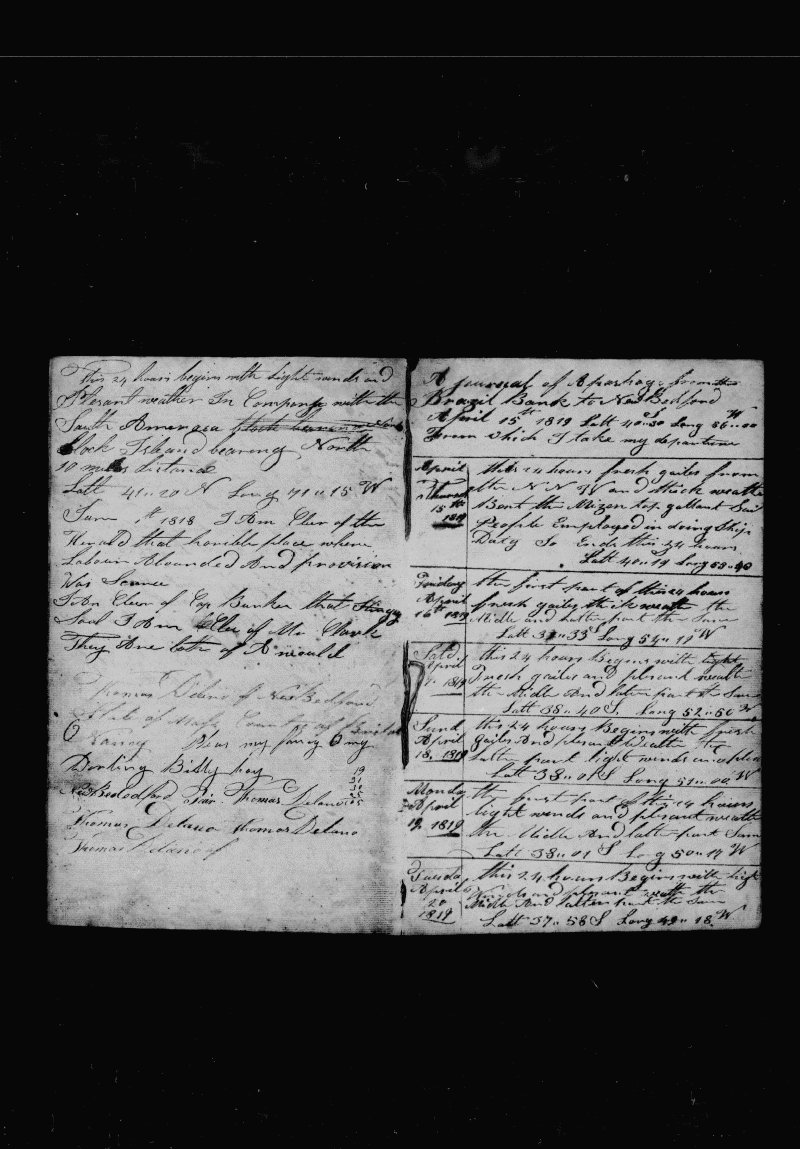 This 24 hours begins with Light winds and
Plesant weather In Company with the
South Amaraca
Block Island bearing North
10 miles distance
Latt 41 " 20 N Long 71 " 15 W
June 1st 1818 I Am Cler of the
Herald that horible place where
Labour Abounded And provision
Was Scarce
I Am Cler of Cap Bunker that Stingy
Soul I Am Cler of Mr Clark
They Are both of A mould
Thomas Delano of New Bedford
State of Mass County of Bristol
O Nancy my fancy O my
Darling Billy boy
19
31
Thomas Delano
Thomas Delano Thomas Delano
Thomas Delano of
A journal of A pashage from the
Brazil Bank to New Bedford
April 15th 1819 Latt 40 " 30 S Long 56 " 00 W
From which I take my departure
April
15th
1819
this 24 hours fresh gailes from
the N N W and thick weathe
Bent the Mizen top gallant Sail
People Employed in doing Ship
Duty So Ends this 24 hours
Latt 40 " 19 Long 55 " 40
Friday
April
16th 1819
the first part of this 24 hours
fresh gailes thick weath the
Midle and latter part the Same
Latt 39 " 33 S Long 54 " 11 W
Satd
April
1819
this 24 hours Begins with light
Fresh gailes and plesant weath
the Midle And latter part the Same
Latt 38 " 40 S Long 52 " 50 W
Sund
April
18. 1819
this 24 hours Begins with fresh
gailes And plesant Weathe the
latter part light winds
Latt 38 " 01 S Long 51 " 00 W
Monday
April
19. 1819
the first part of this 24 hours
light winds and plesant weath
the Midle And latter part Same
Latt 38 " 01 S Long 50 " 14 W
Tuesday
April
20
1819
this 24 hours Begins with light
Winds and plesant weath the
Midle And latter part the Same
Latt 37 " 58 S Long 49 " 18 W